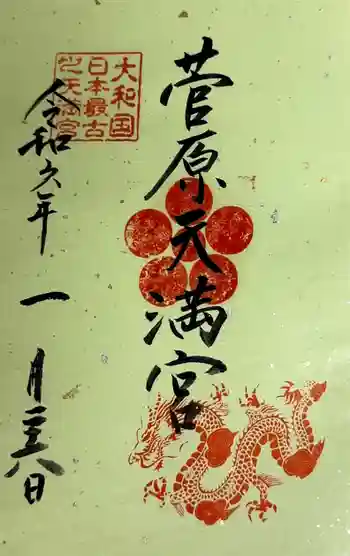 菅原天満宮
大和国
日本最古
之天満宮
令和六年
一月二十八日